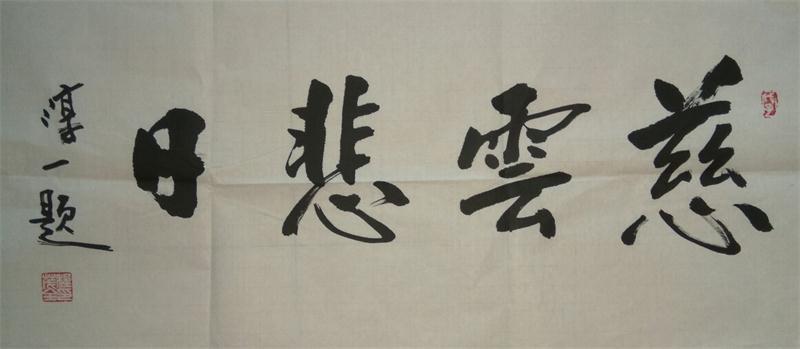 慈雲悲日
淳一題